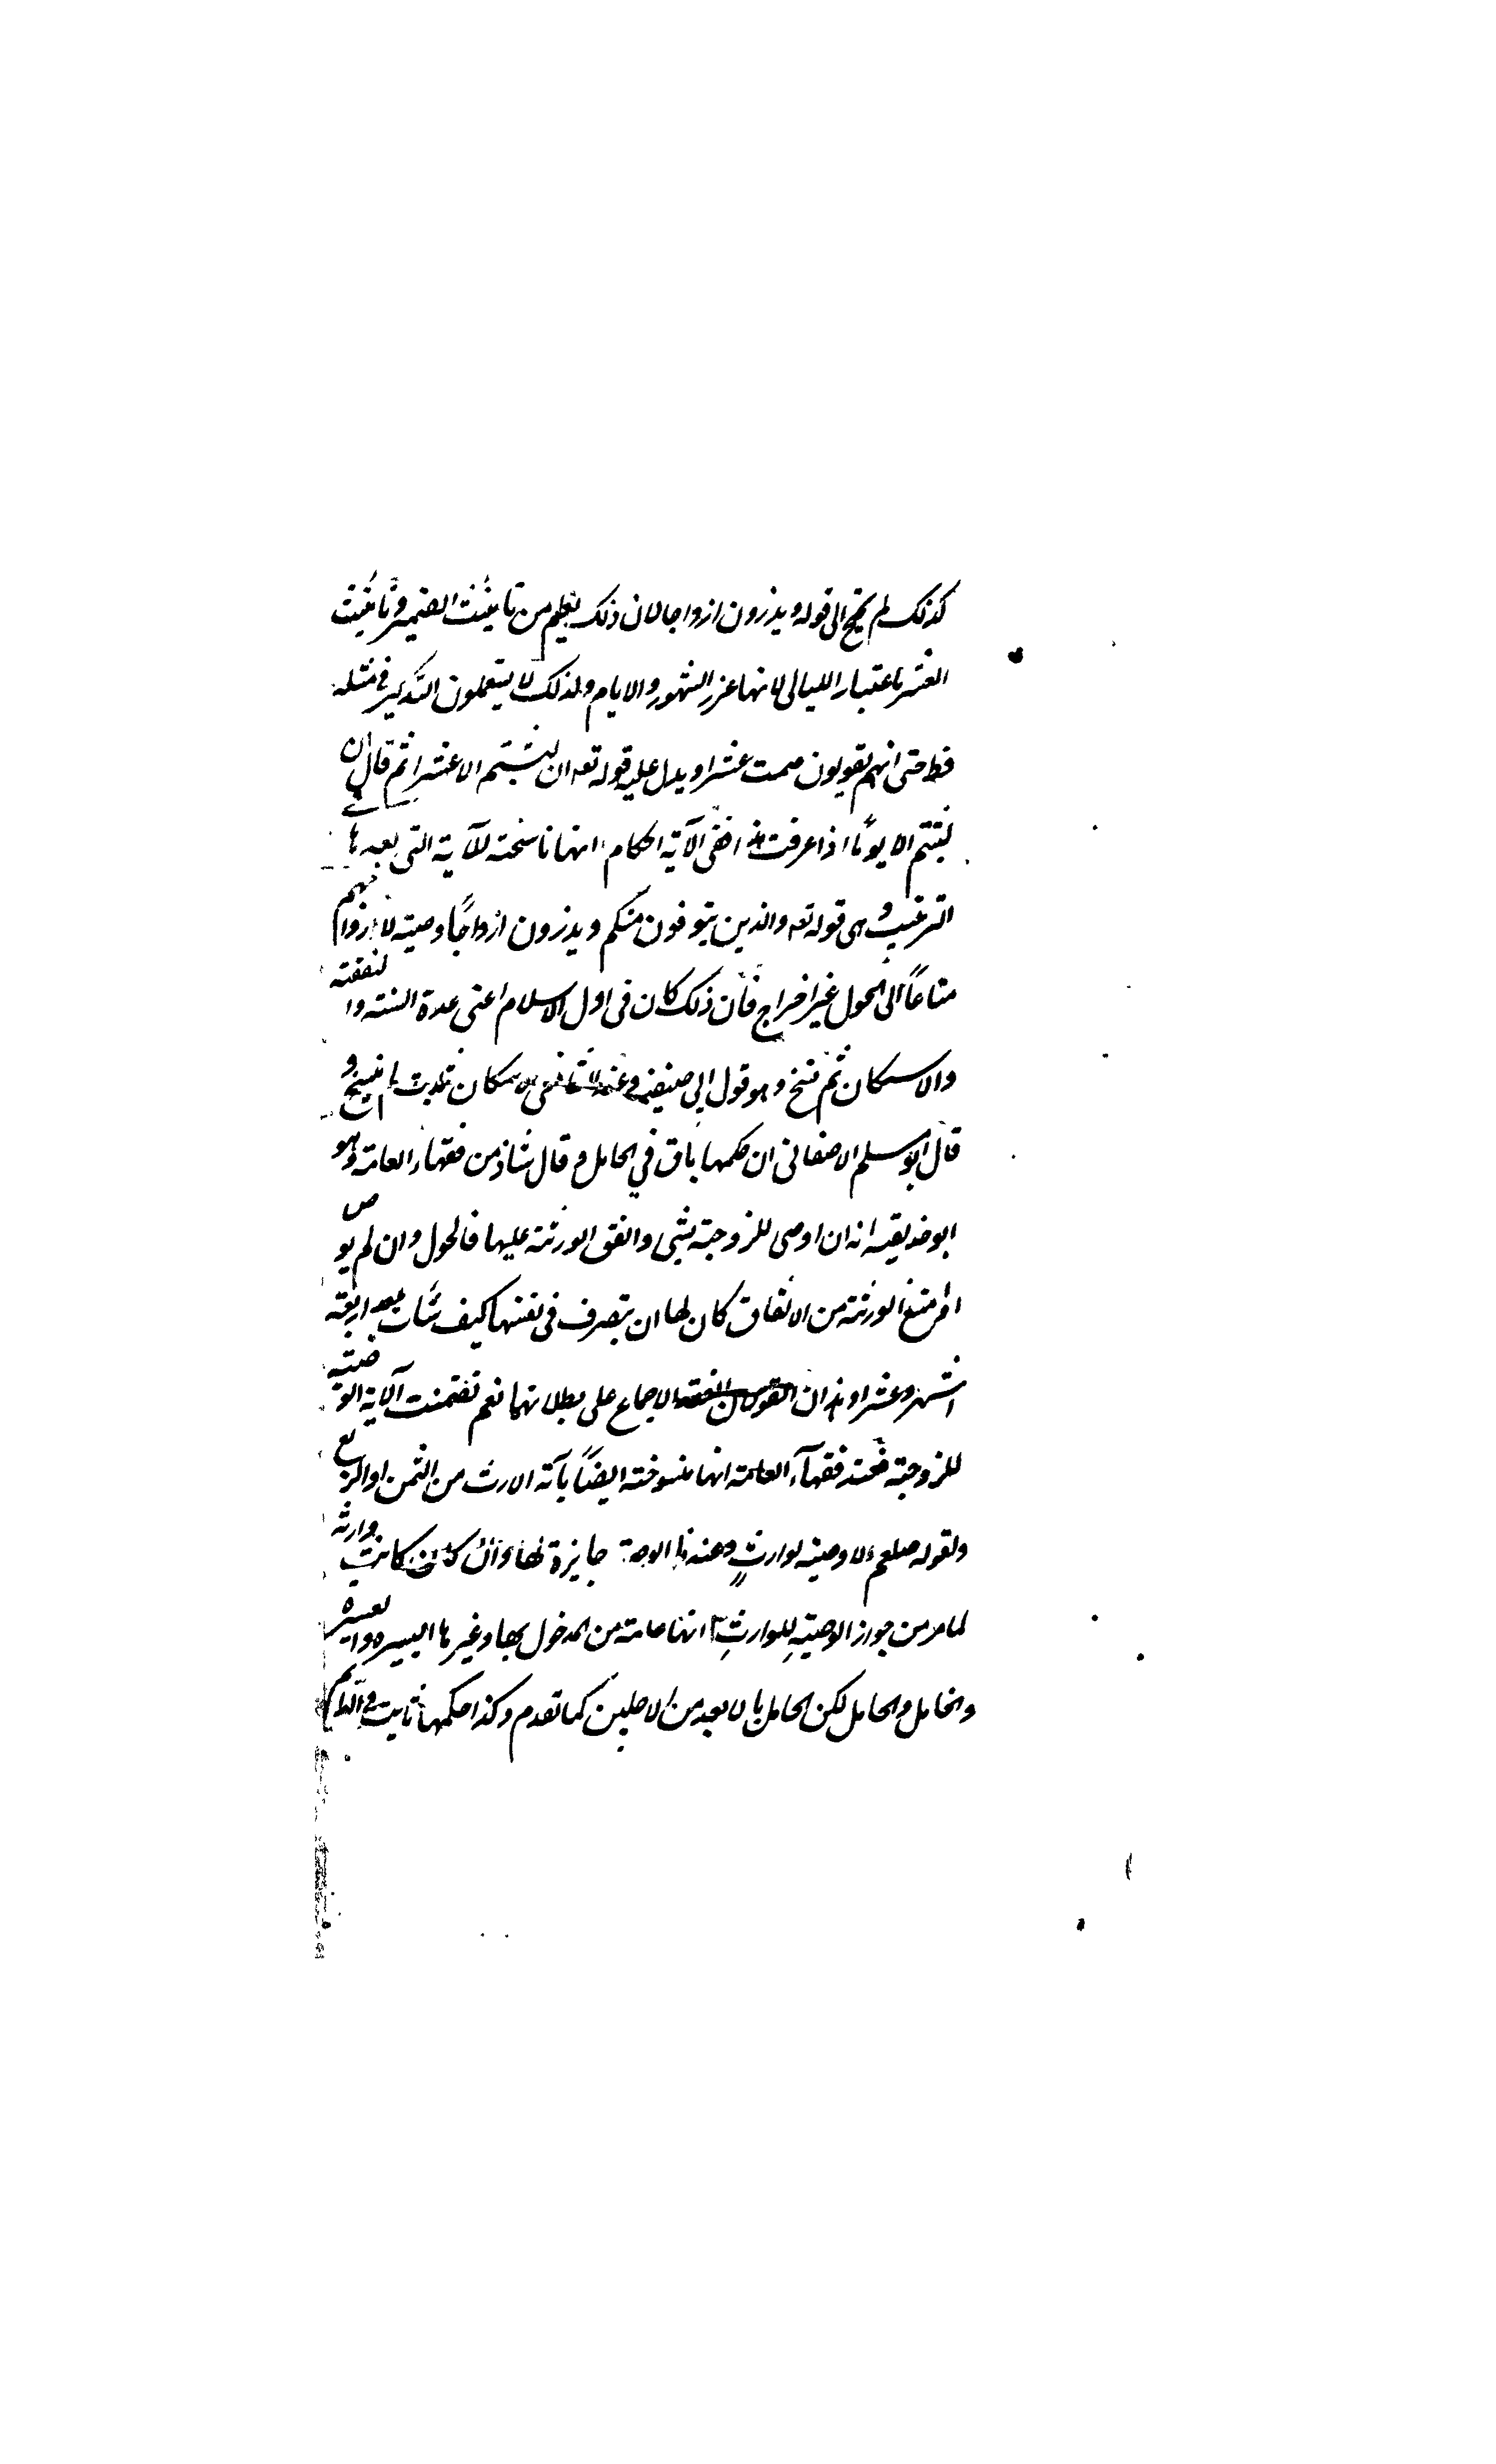 كذلك لم يحتج الى قوله ويذرون ازواجا لان ذلك يعلم من تانيث الضمير وتانيث
العشر باعتبار الليالى لانها غرر الشهور والايام ولذلك لا يستعملون التذكير فى مثله
قط حتى انهم يقولون صمت عشرا ويدل عليه قوله تعه ان لبثتم الا عشرا ثم قال ان
لبثتم الا يوما اذا عرفت هذا ففى الآية احكام ا انها ناسخة للآية التى بعدها
الترتيب وهى قوله تعه والذين يتوفون منكم ويذرون ازواجا وصية لازواجهم
متاعًا الى الحول غير اخراج فان ذلك كان فى اول الاسلام اعنى عدة السنة والنفقة
والاسكان ثم نسخ وهو قول ابى حنيفة وعند الشافعى الاسكان ثابت لم ينسخ و
قال ابو مسلم الاصفهانى ان حكمها باق في الحامل وقال شاذ من فقهاء العامة وهو
ابو حذيفه انه ان اوصى للزوجة بشى وانفق الورثة عليها فالحول وان لم يوص
او امتنع الورثة من الانفاق كان لها ان يتصرف فى نفسها كيف شات بعد اربعة
اشهر وعشرا وهذان القولان الاجماع على بطلانهما نعم تضمنت الآية الوصية
للزوجة فعند فقهآء العامة انها منسوخة ايضًا بآية الارث من الثمن او الربع
ولقوله صلعم لا وصية لوارثٍ وعندنا الوصية جايزة لها وان كانت وارثه
لما مر من جواز الوصيةِ للوارثِ ٢ انها عامة من المدخول بها وغيرها اليسيره والعسيره
والحامل والحايل لكن الحامل بالابعد من الاجلين كما تقدم وكذا حكمها ثابت فى